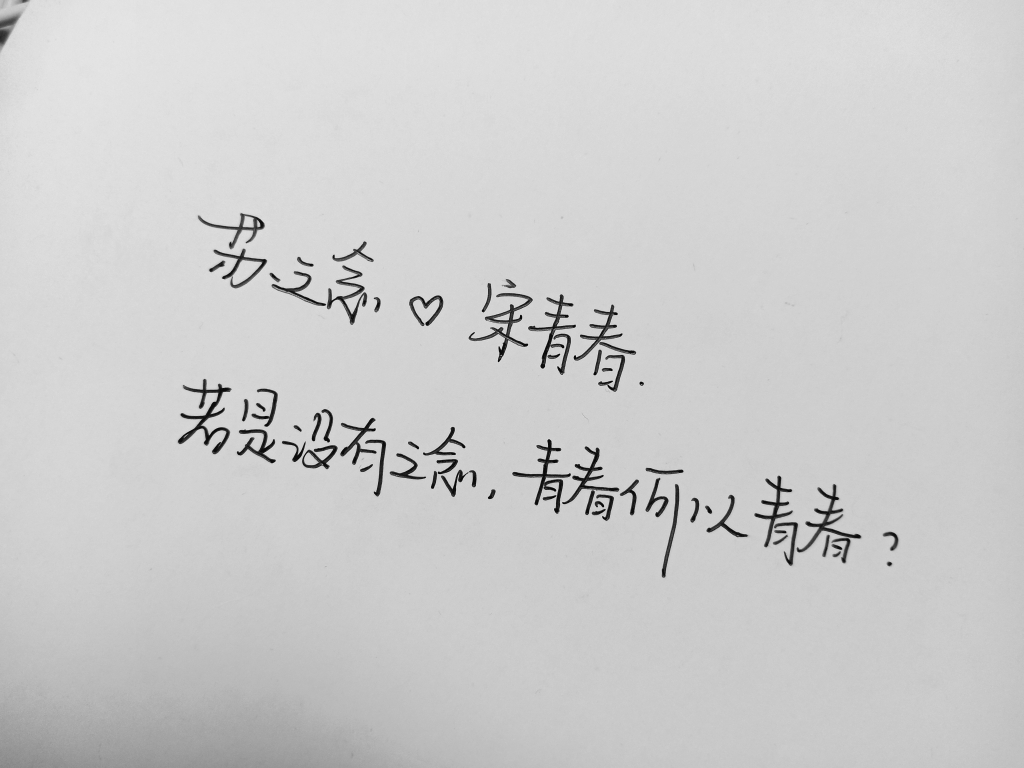 苏之念♡宋青春.
若是没有之念,青春何以青春?